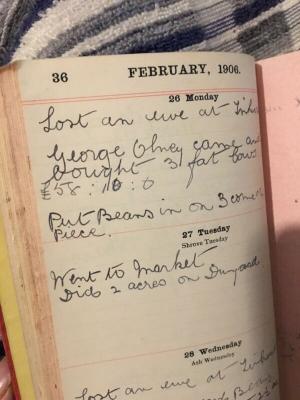 36 FEBRUARY, 1906.
26 Monday
Lost an ewe at
George Olney came and
bought 3 fat cows
£58 : 10 : 0
Put Beans in on 3 corner
Piece.
27 Tuesday
Shrove Tuesday
Went to market
Did 2 acres on
28 Wednesday
Ash Wednesday
Lost an ewe at